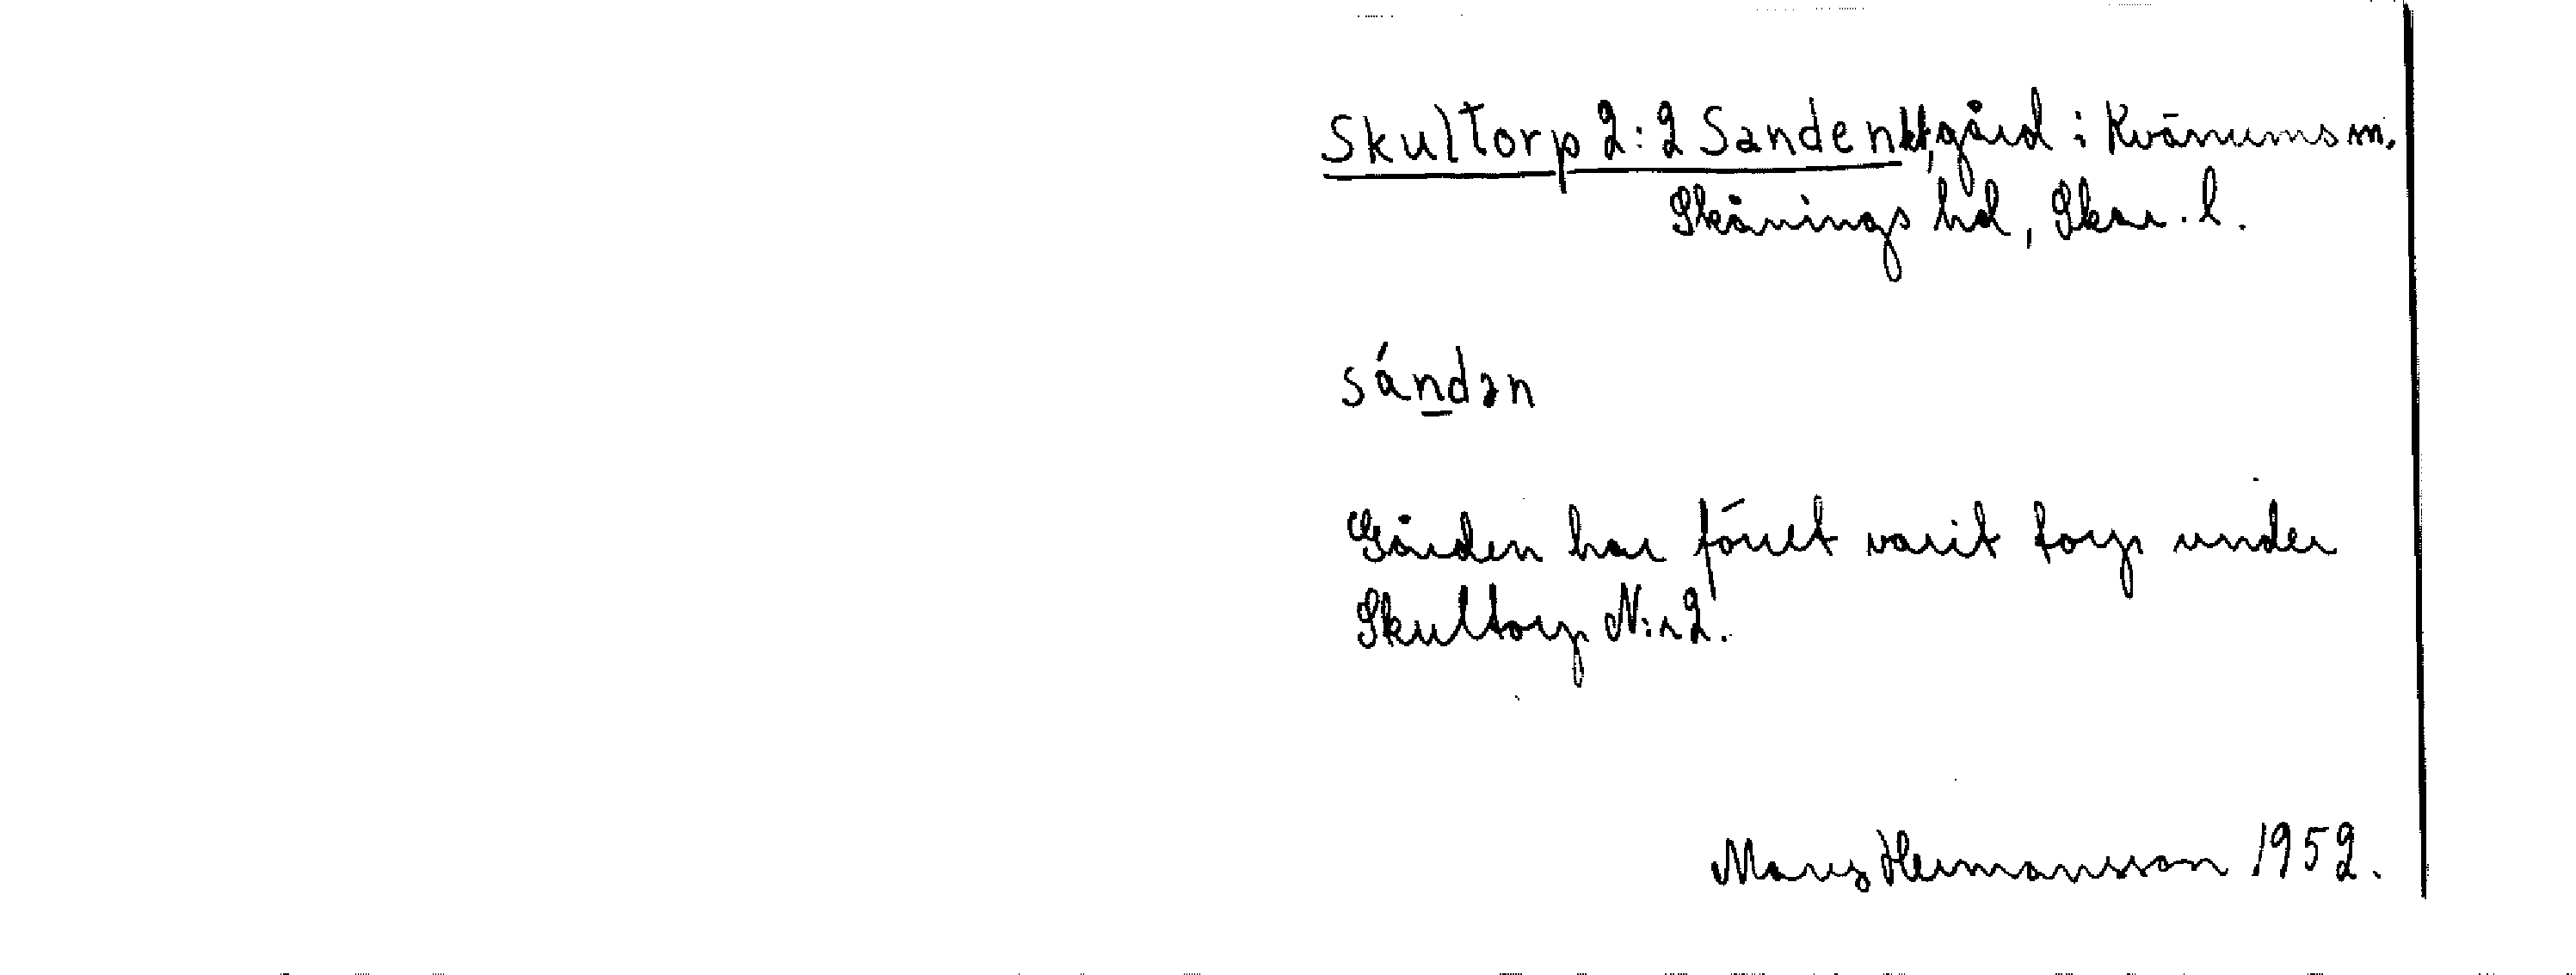 Skultorp 2:2 Sanden, gård i Kvänums sn.
Skånings hd, Skar. l.
sándən
Gården har förut varit torp under
Skultorp N:r 2.
Mary Hermansson 1952.